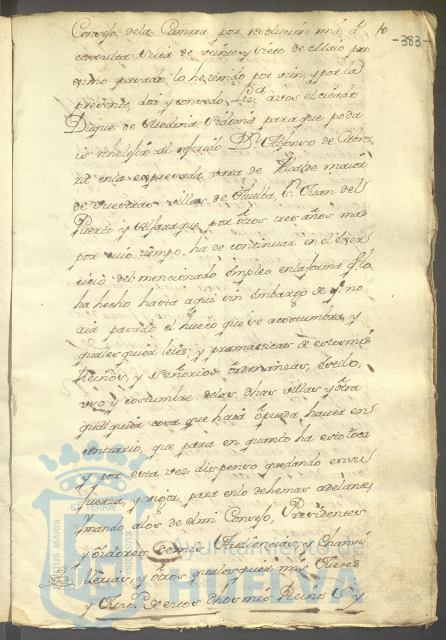 10
-383-
Consejo dela Camara por resolucion mia, á
consulta suia de veinte y siete de Maio pro
ximo pasado lo he tenido por vien, y por la
presente, doi y concedo Liz.ª á vos el citado
Duque de Medina Sidonia para que poda
is reheleǵir al referido Dn Alfonso de Cabre
ra enla expresada vara de Alcalde maior
de vuestras villas de Huelba, Sn Juan del
Puerto y Aljaraque, por otros tres años mas
por cuio tiempo, ha de continuar en el exer
cicio del mencionado Empleo enla forma q.e lo
ha hecho hasta aqui sin embargo de q.e no
aia pasado el hueco que se acostumbra, y
qualesquier leies, y pramaticas de estos mis
Reinos, y Señorios ordenanzas, estilo,
uso, y costumbre delas dhas villas y otra
qualquiera cosa que haia ó pueda haver en
contrario, que para en quanto ha esto toca
y por esta vez dispenso quedando en su
fuerza, y vigor para enlo dehemas adelante,
y mando alos de el mi Consejo, Presidentes
y oidores demis Audiencias, y Chanci
llerias, y otros qualesquier mis Jueces
y Just.s de estos dhos mis Reinos y
PORTUS MARIS
ET TERRAE
CUSTODIA
Ayuntamiento de
HUELVA